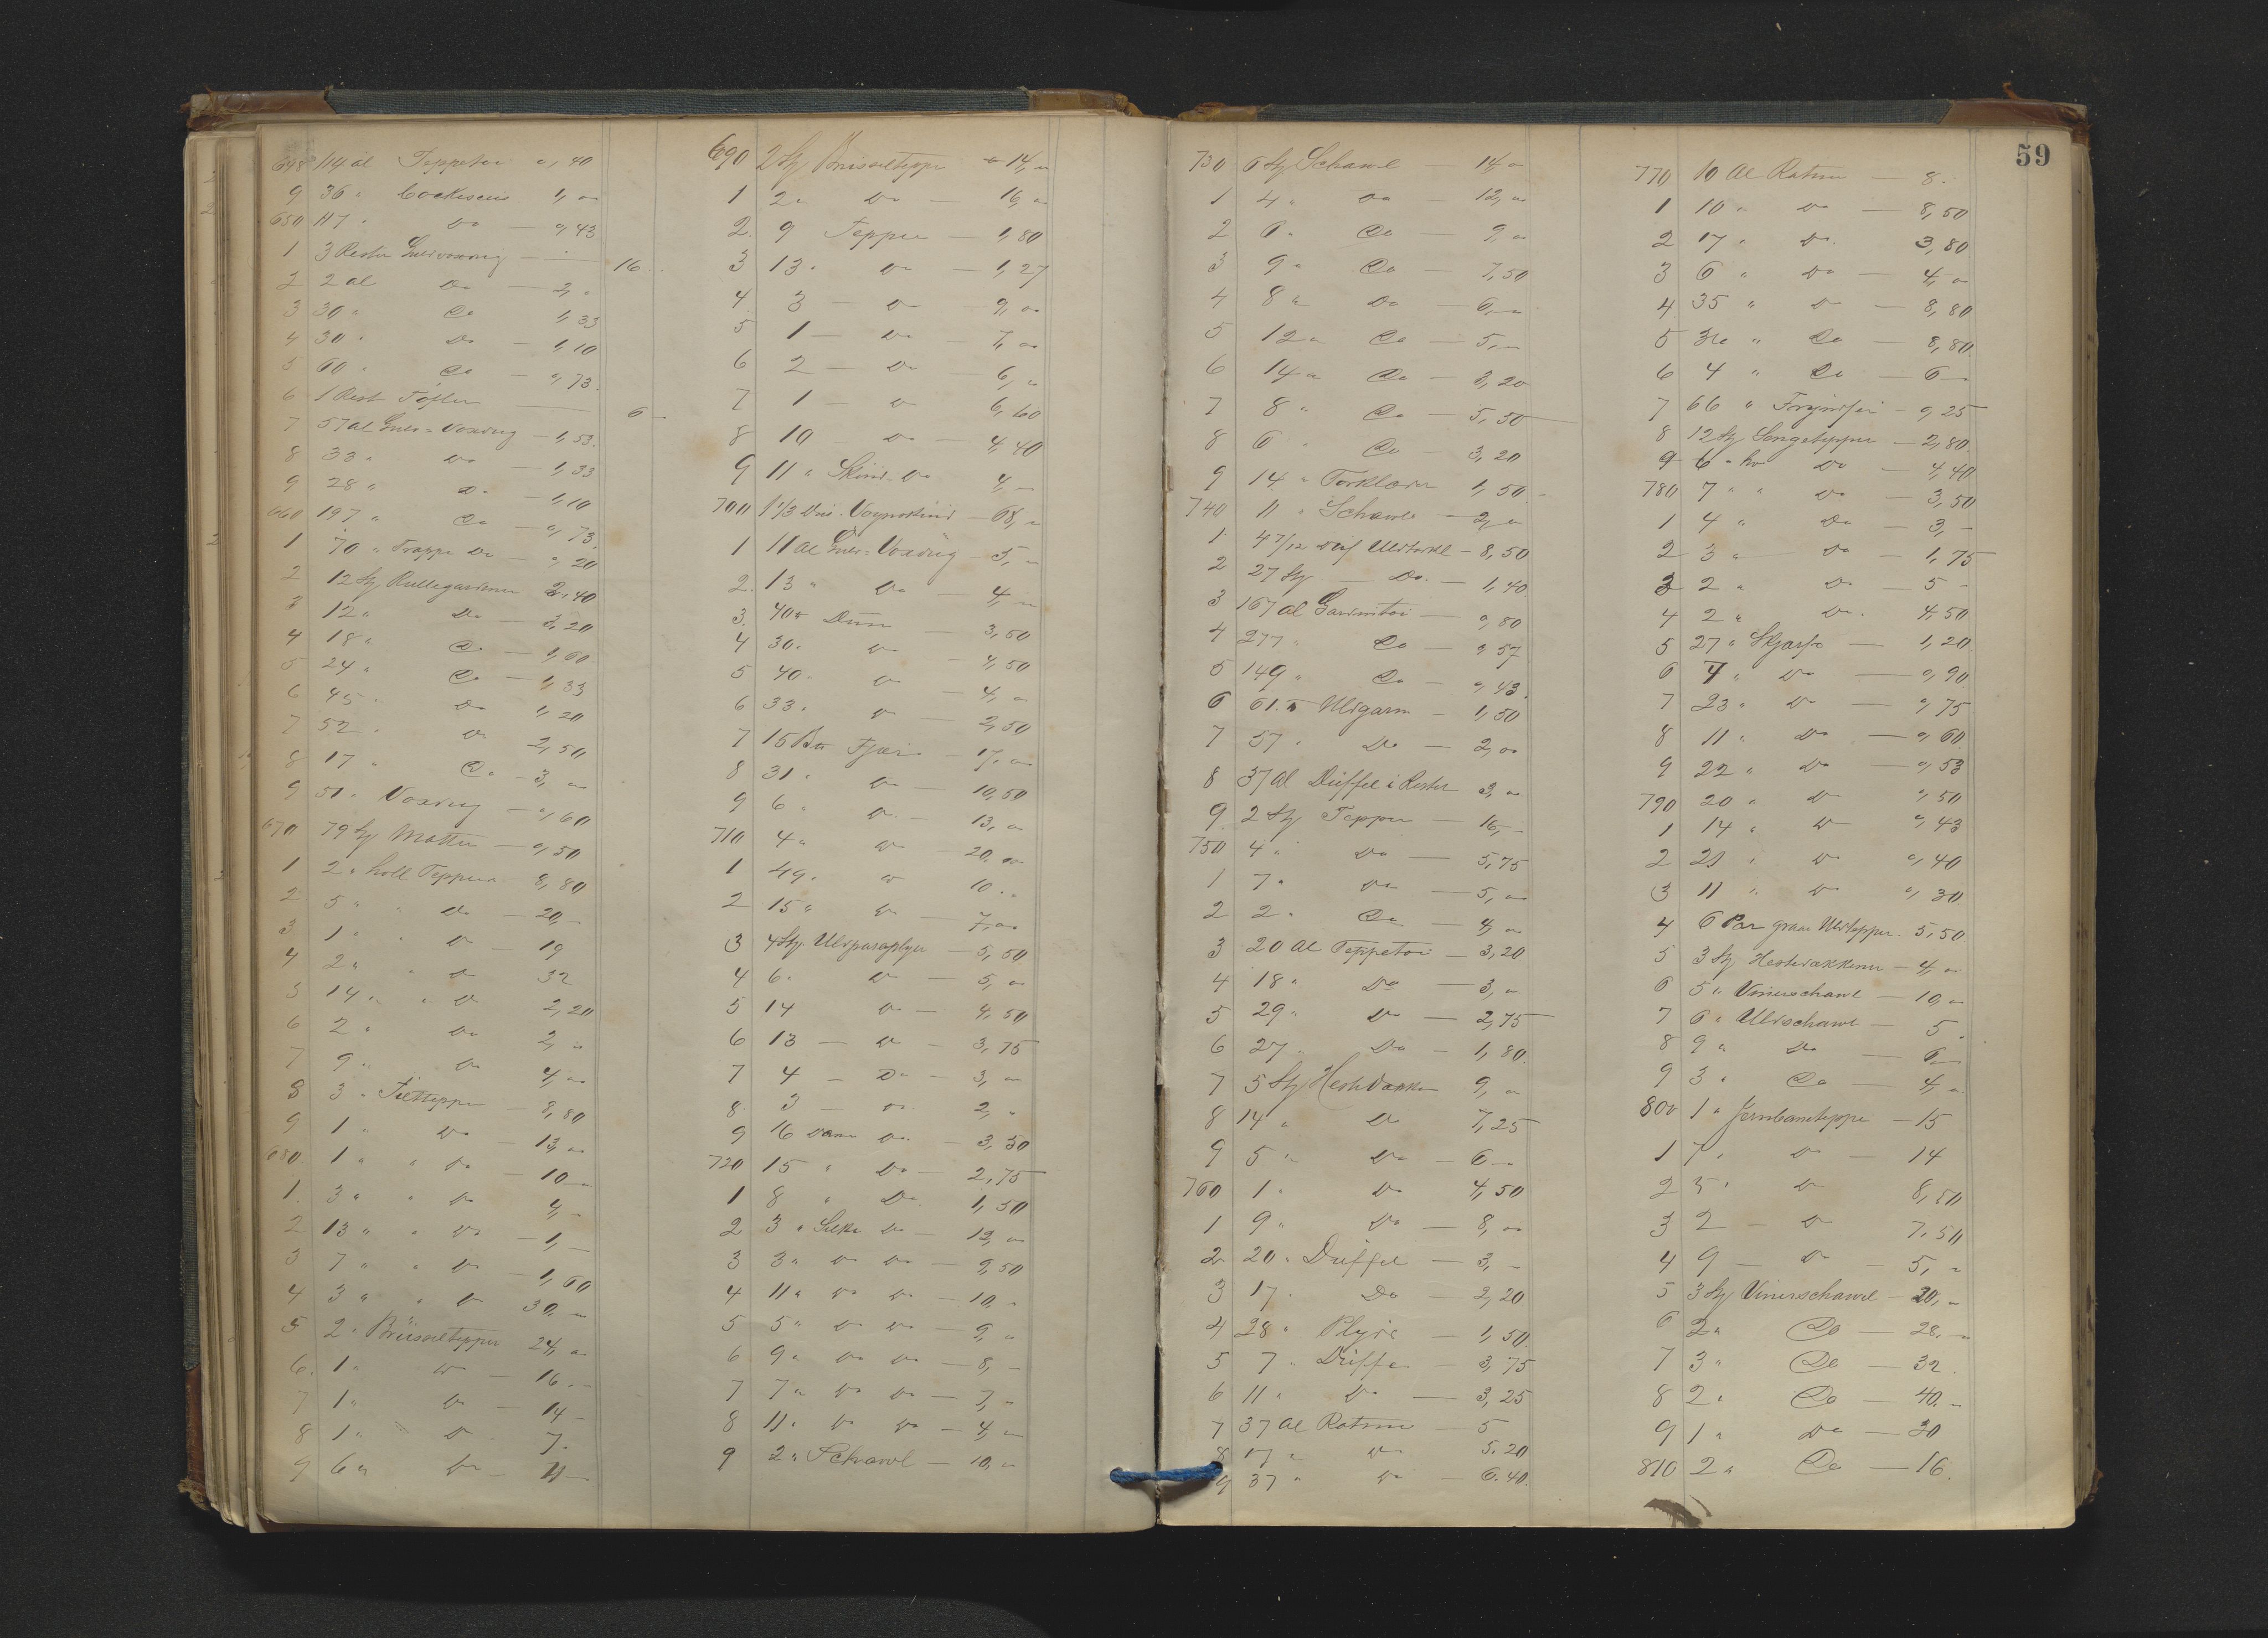 648 114 al Teppetøi 0,40
9 36 " Cockosceus 1,00
650 117 " Do — 0,43
1 3 Rester Gulvvoxdug — 16
2 2 al Do — 2,"
3 30 " Do 1,33
4 30 " Do — 1,10
5 60 " Do — 0,73
6 1 Rest Tøfler — 6 —
7 57 al Gulv=Voxdug — 1,53
8 33 " Do — 1,33
9 28 " Do — 1,10
660 197 " Do — 0,73
1 70 " Trappe Do — 0,20
2 12 Stj Rullegardiner 2,40
3 12 " Do — 3,20
4 18 " Do — 1,60
5 24 " Do — 1,33
6 45 " Do 1,20
7 52 " Do 2,50
8 17 " Do — 3,00
9 51 " Voxdug — 0,60
670 79 Stj Matter — 0,50
1 2 " holl Tepper 8,80
2 5 " " Do — 20,—
3 1 " " Do — 19
4 2 " " Do 32
5 14 " " Do 2,20
6 2 " Do 2,"
7 9 " Do 4,00
8 3 " Filttepper — 8,80
9 1 " Do — 13,00
680 1 " " Do — 10 —
1 3 " " Do 4,—
2 13 " " Do — 1,—
3 7 " " Do — 1,60
4 3 " " Do 30,—
5 2 " Brüsseltepper 24,00
6 1 " Do — 16.—
7 1 " Do — 14 —
8 1 " Do 7.
9 6 " Do — 11 —
690 2 Stj Brüsseltepper — 14,00
1 2 " Do — 16,00
2 9 Tepper — 1,80
3 13 " Do — 1,27
4 3 — Do — 9,00
5 1 — Do — 7,00
6 2 — Do — 6,"
7 1 — Do 6,60
8 10 — Do — 4,40
9 11 " Skind Do 4,—
700 1 1/3 Dus. Vognskind — 68,"
1 11 al Gulv=Voxdug — 5,"
2 13 " Do — 4,"
3 40 ℔ Duun — 3,50
4 30 " Do — 4,50
5 40 " Do — 4,"
6 33 " Do — 2,50
7 15 B℔ Fjær — 17,00
8 31 " Do — 10,50
9 6 " Do — 13,"
710 4 " Do — 20,00
1 49 " Do 10..
2 15 " Do — 7,00
3 4 Stj Uldparaplyer — 5,50
4 6 " Do — 5,"
5 14 Do — 4,50
6 13 — Do — 3,75
7 4 — Do — 3,"
8 3 — Do 2,"
9 16 Dame Do — 3,50
720 15 " Do — 2,75
1 8 " Do 1,50
2 3 " Silke Do — 12,00
3 3 " Do Do — 9,50
4 11 " Do Do — 10,"
5 5 " Do Do — 9,"
6 9 " Do Do — 8,—
7 7 " Do Do — 7,"
8 11 " Do Do — 4,"
9 2 " Schawl — 10,"
59
730 6 Stj Schawl — 14,00
1 4 " Do — 12,00
2 6 " Do — 9,"
3 9 " Do — 7,50
4 8 " Do — 6,"
5 12 " Do — 5,"
6 14 " Do — 3,20
7 8 " Do — 5,50
8 6 " Do — 3,20
9 14 " Forklæder 1,50
740 11 " Schawle — 2,"
1 4 7/12 Dus Uldtørkl — 8,50
2 27 Stj — Do — 1,40
3 167 al Gardintøi — 0,80
4 277 " Do — 0,57
5 149 " Do — 0,43
6 61 ℔ Uldgarn — 1,50
7 57 " Do — 2,00
8 37 al Duffel i Rester 3,"
9 2 Stj Tepper — 16,—
750 4 " Do — 5,75
1 7 " Do — 5,00
2 2 " Do — 4,00
3 20 al Teppetøi — 3,20
4 18 " Do — 3,"
5 29 " Do — 2,75
6 27 " Do — 1,80
7 5 Stj Hestedækk— 9,"
8 14 " Do 7,25
9 5 " Do — 6 —
760 1 " Do 4,50
1 9 " Do — 8,00
2 20 " Duffel — 3,—
3 17 " Do — 2,20
4 28 " Plyds — 1,50
5 7 " Duffel — 3,75
6 11 " Do — 3,25
7 37 al Ratine — 5
8 17 " Do 5.20
9 37 " Do — 6.40
770 10 al Ratine — 8.
1 10 " Do — 8,50
2 17 " Do 3,80
3 6 " Do — 4,"
4 35 " Do — 8,80
5 " Do — 8,80
6 4 " Do — 6 —
7 66 " — 0,25
8 12 Stj Sengetepper — 2,80
9 6 " hv Do — 4,40
780 7 " " Do — 3,50
1 4 " Do — 3,—
2 3 " Do — 1,75
3 2 " Do — 5 —
4 2 " Do 4,50
5 27 " Skjærf — 1,20
6 7 " Do — 0,90
7 23 " Do — 0,75
8 11 " Do — 0,60
9 22 " Do — 0,53
790 20 " Do 0,50
1 14 " Do 0,43
2 21 " Do 0,40
3 11 " Do 0,30
4 6 Par graae Uldtepper 5,50
5 3 Stj Hestedækkener — 4,"
6 5 " Vinterschawl — 10,"
7 6 " Uldschawl — 5.
8 9 " Do — 6 —
9 3 " Do — 4,"
800 1 " Jernbanetæppe — 15
1 7 " Do — 14
2 5 " Do 8,50
3 2 — Do 7,50
4 9 — Do — 5,"
5 3 Stj Vinterschawl — 20,—
6 2 " Do — 28,—
7 3 " Do — 32
8 2 " Do — 40,"
9 1 " Do — 30
810 2 " Do — 16.